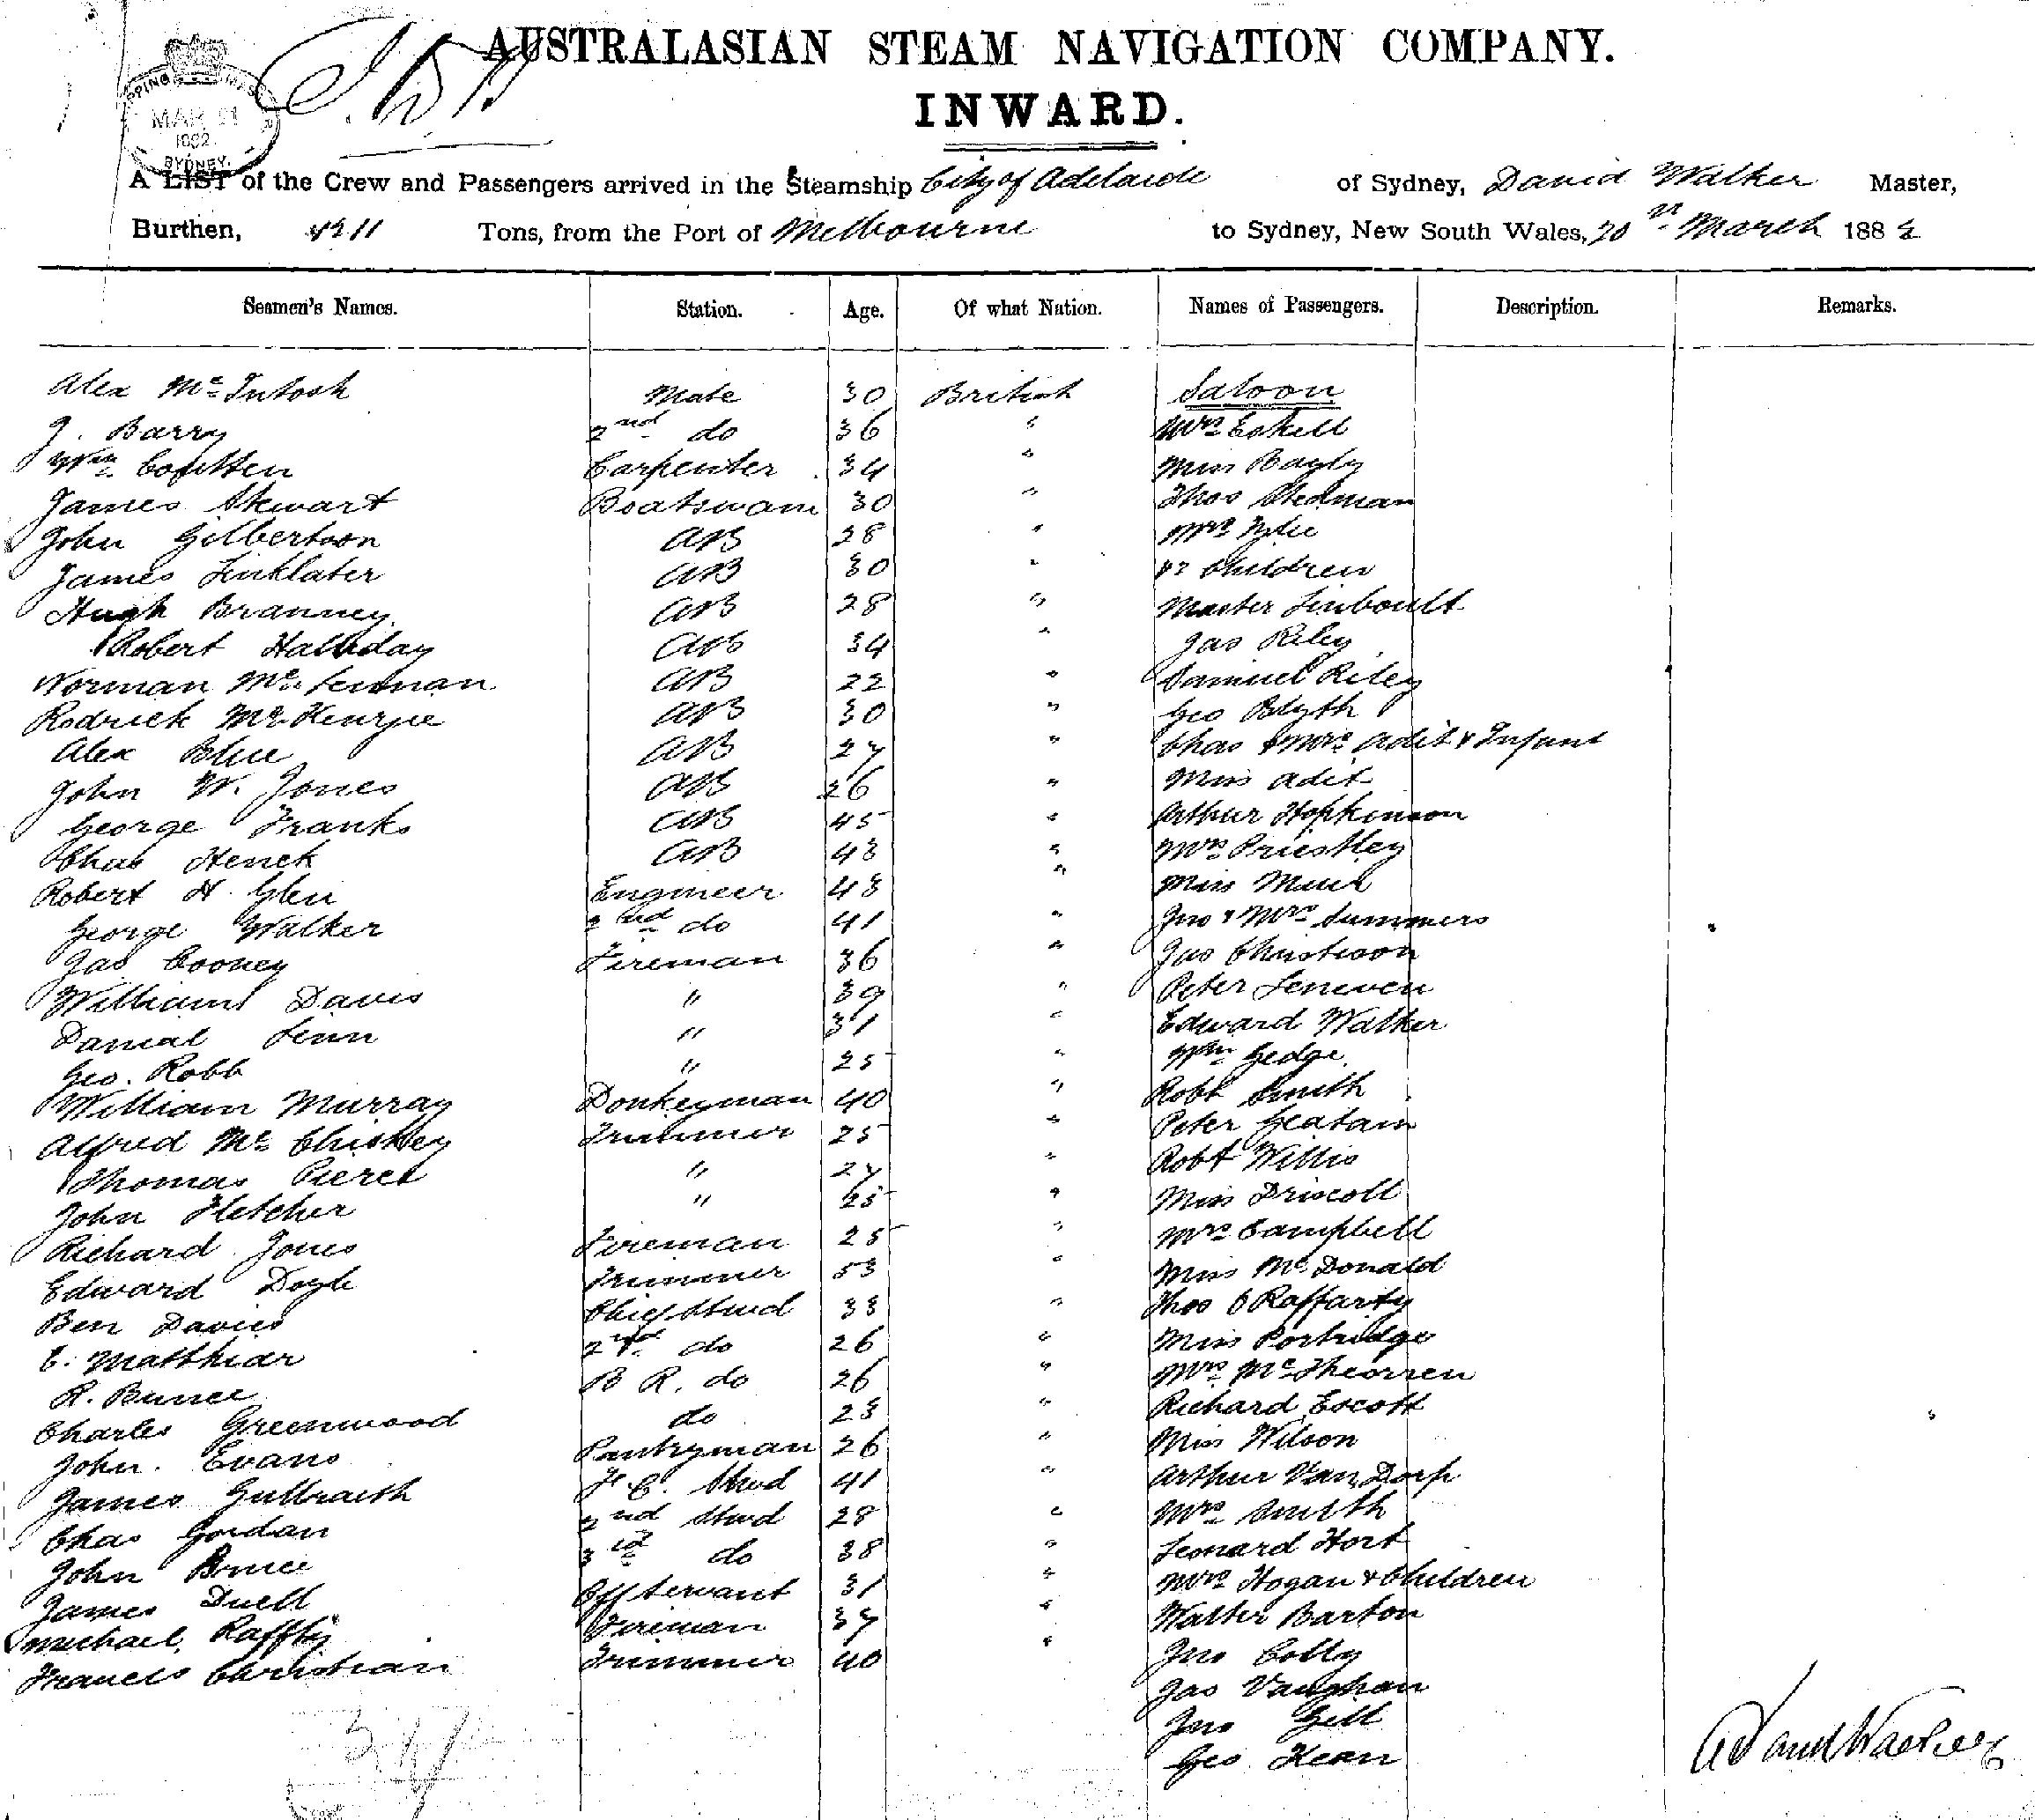 AUSTRALASIAN STEAM NAVIGATION COMPANY.
INWARD.
MAR 21
SYDNEY.
A LIST of the Crew and Passengers arrived in the Steamship City of Adelaide of Sydney, David Walker Master,
Burthen, Tons, from the Port of Melbourne to Sydney, New South Wales, 20th March 1882
Seamen's Names. Station. Age. Of what Nation. Names of Passengers. Description. Remarks.
Alex McIntosh Mate 30 British Saloon
J. Barry 2nd do 36 " Mrs Eskell
Wm Carpenter 34 " Miss Bayly
James Stewart Boatswain 30 " Thos Stedman
John Gilbertson AB 28 " Mrs
James Linklater AB 30 " & 2 Children
Hugh Branney AB 28 " Master
Robert Halliday AB 34 " Jas Riley
Norman McLennan AB 22 " Samuel Riley
Rodrick McKenzie AB 30 " Geo Blyth
Alex Blue AB 27 " Chas & Mrs Adit & Infant
John W. Jones AB 26 " Miss Adit
George Franks AB 45 " Arthur Hopkinson
Chas Henek AB 43 " Mrs Priestley
Robert H. Glen Engineer 43 " Miss
George Walker 2nd do 41 " Jno & Mrs Summers
Jas Cooney Fireman 36 " Jas Christison
William Davis " 39 " Peter Leneven
Danial Lenn " 31 " Edward Walker
Geo. Robb " 25 " Wm Gedge
William Murray Donkeyman 40 " Robt Smith
Alfred Mc Trimmer 25 " Peter Geatam
Thomas " 27 " Robt Willis
John Fletcher " 25 " Miss Driscoll
Richard Jones Fireman 25 " Mrs Campbell
Edward Doyle Trimmer 53 " Miss McDonald
Ben Davies Chief Stwd 33 " Thos O Raffarty
C. Matthiar 2nd do 26 " Miss Portridge
R. Bunce B R. do 26 " Mrs
Charles Greenwood do 23 " Richard Escott
John. Evans Pantryman 26 " Miss Wilson
James Gulbraith F C. Stwd 41 " Arthur Van Dorp
Chas Gordan 2nd Stwd 28 " Mrs Smith
John Bruce 3rd do 38 " Leonard Hort
James Duell Off Servant 31 " Mrs Hogan & Children
Michael Raffty Fireman 37 " Walter Barton
Francis Christian Trimmer 40 " Jno Colty
Jas Vaughan
Jno Gill
Geo Kean
David Walker